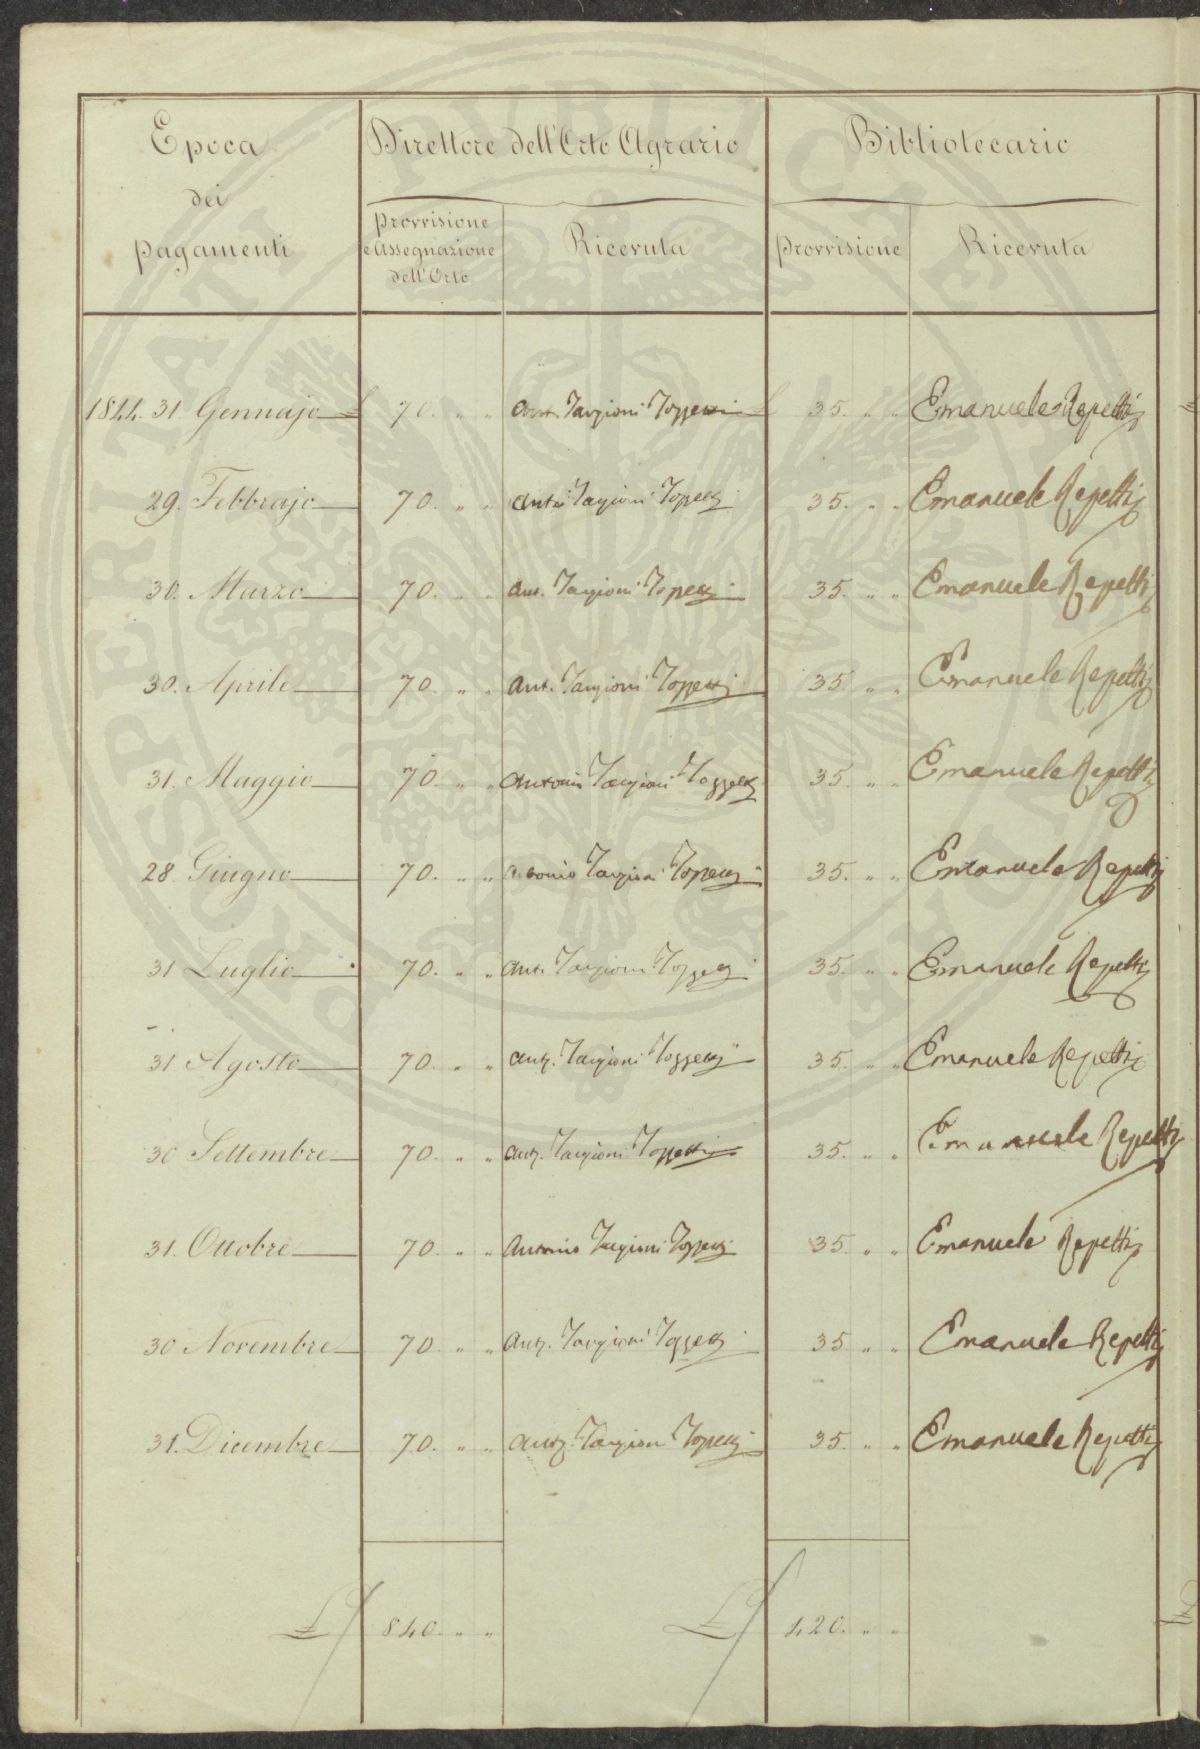 Epoca
dei
pagamenti
Direttore dell'Orto Agrario
Bibliotecario
Provvisione
e Assegnazione
dell'Orto
Ricevuta
Provvisione
Ricevuta
1844. 31. Gennajo £ 70. " " Ant. Targioni Tozzetti £ 35. " " Emanuele Repetti
29. Febbrajo 70. " " Anto Targioni Tozzetti 35. " " Emanuele Repetti
30. Marzo 70. " " Ant. Targioni Tozzetti 35. " " Emanuele Repetti
30. Aprile 70. " " Ant. Targioni Tozzetti 35. " " Emanuele Repetti
31. Maggio 70. " " Antonio Targioni Tozzetti 35. " " Emanuele Repetti
28. Giugno 70. " " Antonio Targioni Tozzetti 35. " " Emanuele Repetti
31 Luglio 70. " " Ant. Targioni Tozzetti 35. " " Emanuele Repetti
31 Agosto 70. " " Ant. Targioni Tozzetti 35. " " Emanuele Repetti
30 Settembre 70. " " Ant. Targioni Tozzetti 35. " " Emanuele Repetti
31. Ottobre 70. " " Antonio Targioni Tozzetti 35. " " Emanuele Repetti
30 Novembre 70 " " Ant. Targioni Tozzetti 35 " " Emanuele Repetti
31. Dicembre 70. " " Ant. Targioni Tozzetti 35. " " Emanuele Repetti
£ 840. " " £ 420. " "
PROSPERITATI PUBLICAE